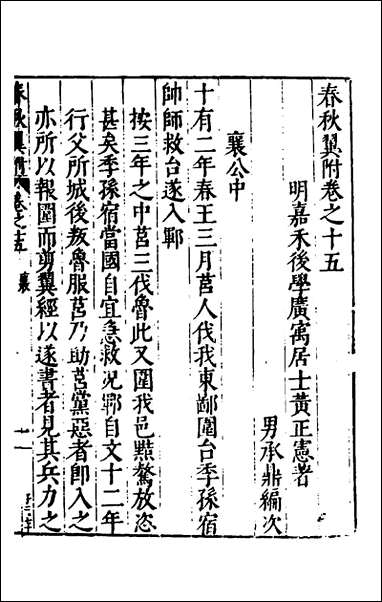 春秋翼附卷之十五
明嘉禾後學廣寓居士黃正憲著
男承鼎編次
襄公中
十有二年春王三月莒人伐我東鄙圍台季孫宿
帥師救台遂入鄆
按三年之中莒三伐魯此又圍我邑黠驁放恣
甚矣季孫宿當國自宜急救況鄆自文十二年
行父所城後叛魯服莒乃助莒黨惡者即入之
亦所以報圍而剪翼經以遂書者見其兵力之
春秋翼附 卷之十五 襄 一